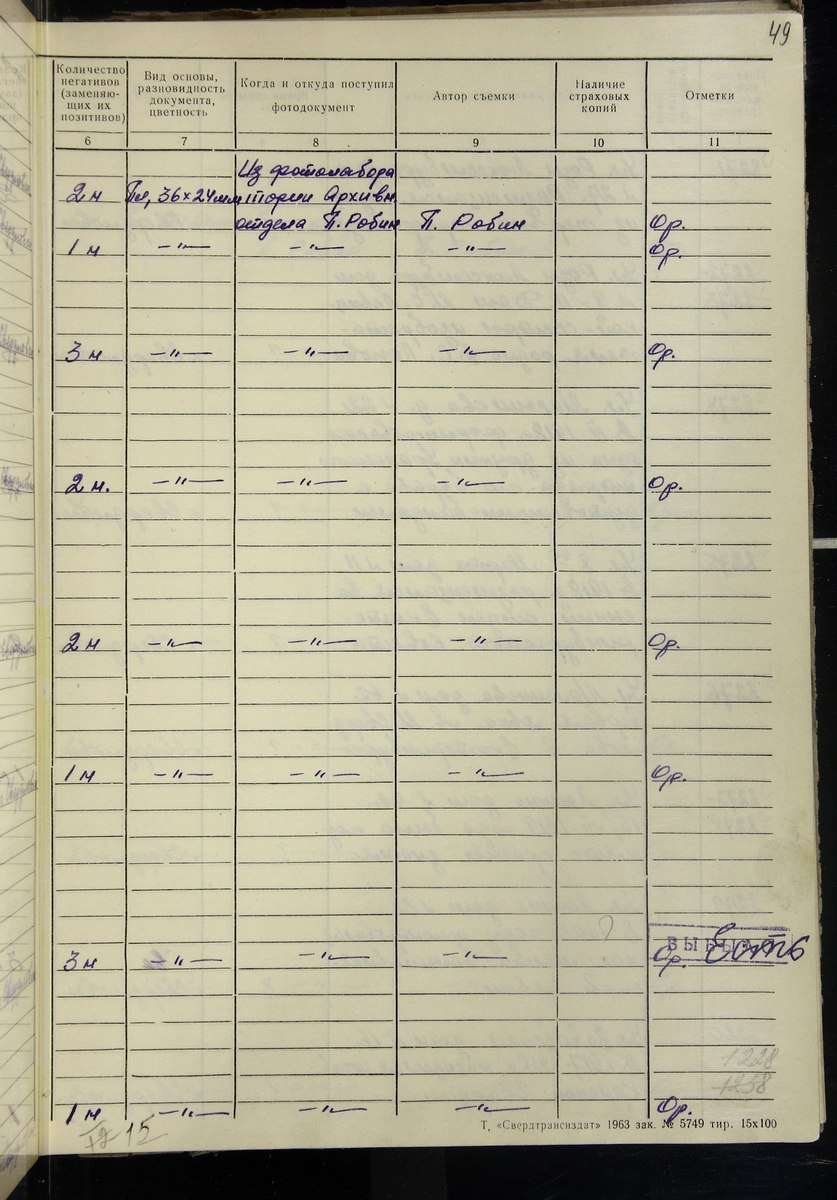 49
Количество негативов (заменяю- щих их позитивов)
Вид основы, разновидность документа, цветность
Когда и откуда поступил фотодокумент
Автор съемки
Наличие страховых копий
Отметки
6 7 8 9 10 11
Из фотолабора
2 н Пл, 36×24мм тории Архивн
отдела П. Робин П. Робин Ор.
1 н —"— —"— —"— Ор.
3 н —"— —"— —"— Ор.
2 н. —"— —"— —"— Ор.
2 н —"— —"— —"— Ор.
1 н —"— —"— —"— Ор.
?
Есть
3 н —"— —"— —"— Ор.
1228
1258
1 н —"— —"— —"— Ор.
15
Т. «Свердтрансиздат» 1963 зак. № 5749 тир. 15х100